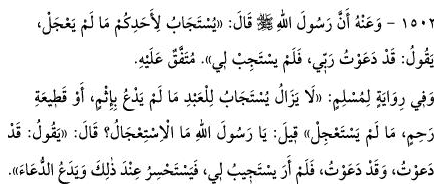 ١٥٠٢ - وَعَنْهُ أَنَّ رَسُولَ اللهِ ﷺ قَالَ: «يُسْتَجَابُ لِأَحَدِكُمْ مَا لَمْ يَعْجَلْ،
يَقُولُ: قَدْ دَعَوْتُ رَبِّي، فَلَمْ يَسْتَجِبْ لِي». مُتَّفَقٌ عَلَيْهِ.
وَفِي رِوَايَةٍ لِمُسْلِمٍ: «لَا يَزَالُ يُسْتَجَابُ لِلْعَبْدِ مَا لَمْ يَدْعُ بِإِثْمٍ، أَوْ قَطِيعَةِ
رَحِمٍ، مَا لَمْ يَسْتَعْجِلْ» قِيلَ: يَا رَسُولَ اللهِ مَا الاِسْتِعْجَالُ؟ قَالَ: «يَقُولُ: قَدْ
دَعَوْتُ، وَقَدْ دَعَوْتُ، فَلَمْ أَرَ يَسْتَجِيبُ لِي، فَيَسْتَحْسِرُ عِنْدَ ذَلِكَ وَيَدَعُ الدُّعَاءَ».